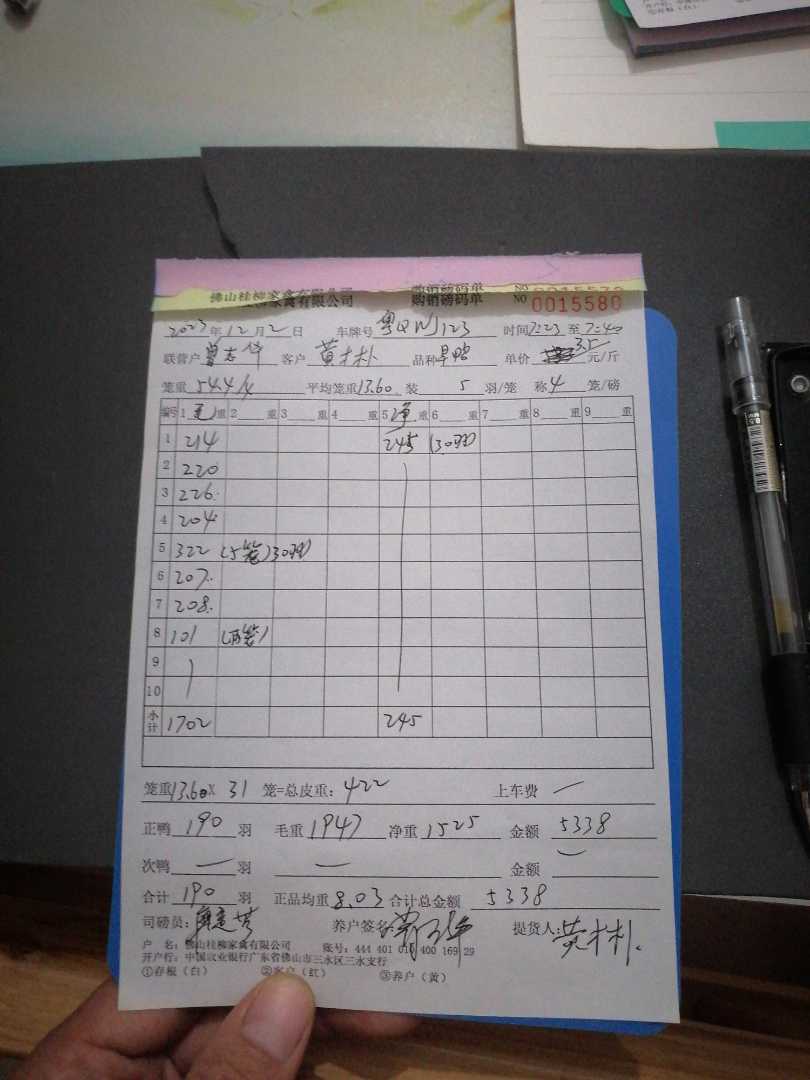 佛山桂柳家禽有限公司 购销磅码单 NO 0015580
2023年12月2日 车牌号 粤QWJ123 时间7:23至7:40
联营户 曾志华 客户 黄才朴 品种旱鸭 单价 3.5 元/斤
笼重 54.4/4 平均笼重13.60 装 5 羽/笼 称4 笼/磅
编号 1 毛 重 2 重 3 重 4 重 5 净 重 6 重 7 重 8 重 9 重
1 214 245 (30羽)
2 220
3 226.
4 204
5 322 (5笼)30羽)
6 207.
7 208.
8 101 (两笼)
9
10
小计 1702 245
笼重13.60X 31 笼=总皮重: 422 上车费 一
正鸭 190 羽 毛重 1947 净重 1525 金额 5338
次鸭 一 羽 一 金额 一
合计 190 羽 正品均重 8.03 合计总金额 5338
司磅员: 养户签名 提货人: 黄才朴.
户 名: 佛山桂柳家禽有限公司 账号: 444 401 010 400 169 29
开户行: 中国农业银行广东省佛山市三水区三水支行
①存根(白) ②客户(红) ③养户(黄)